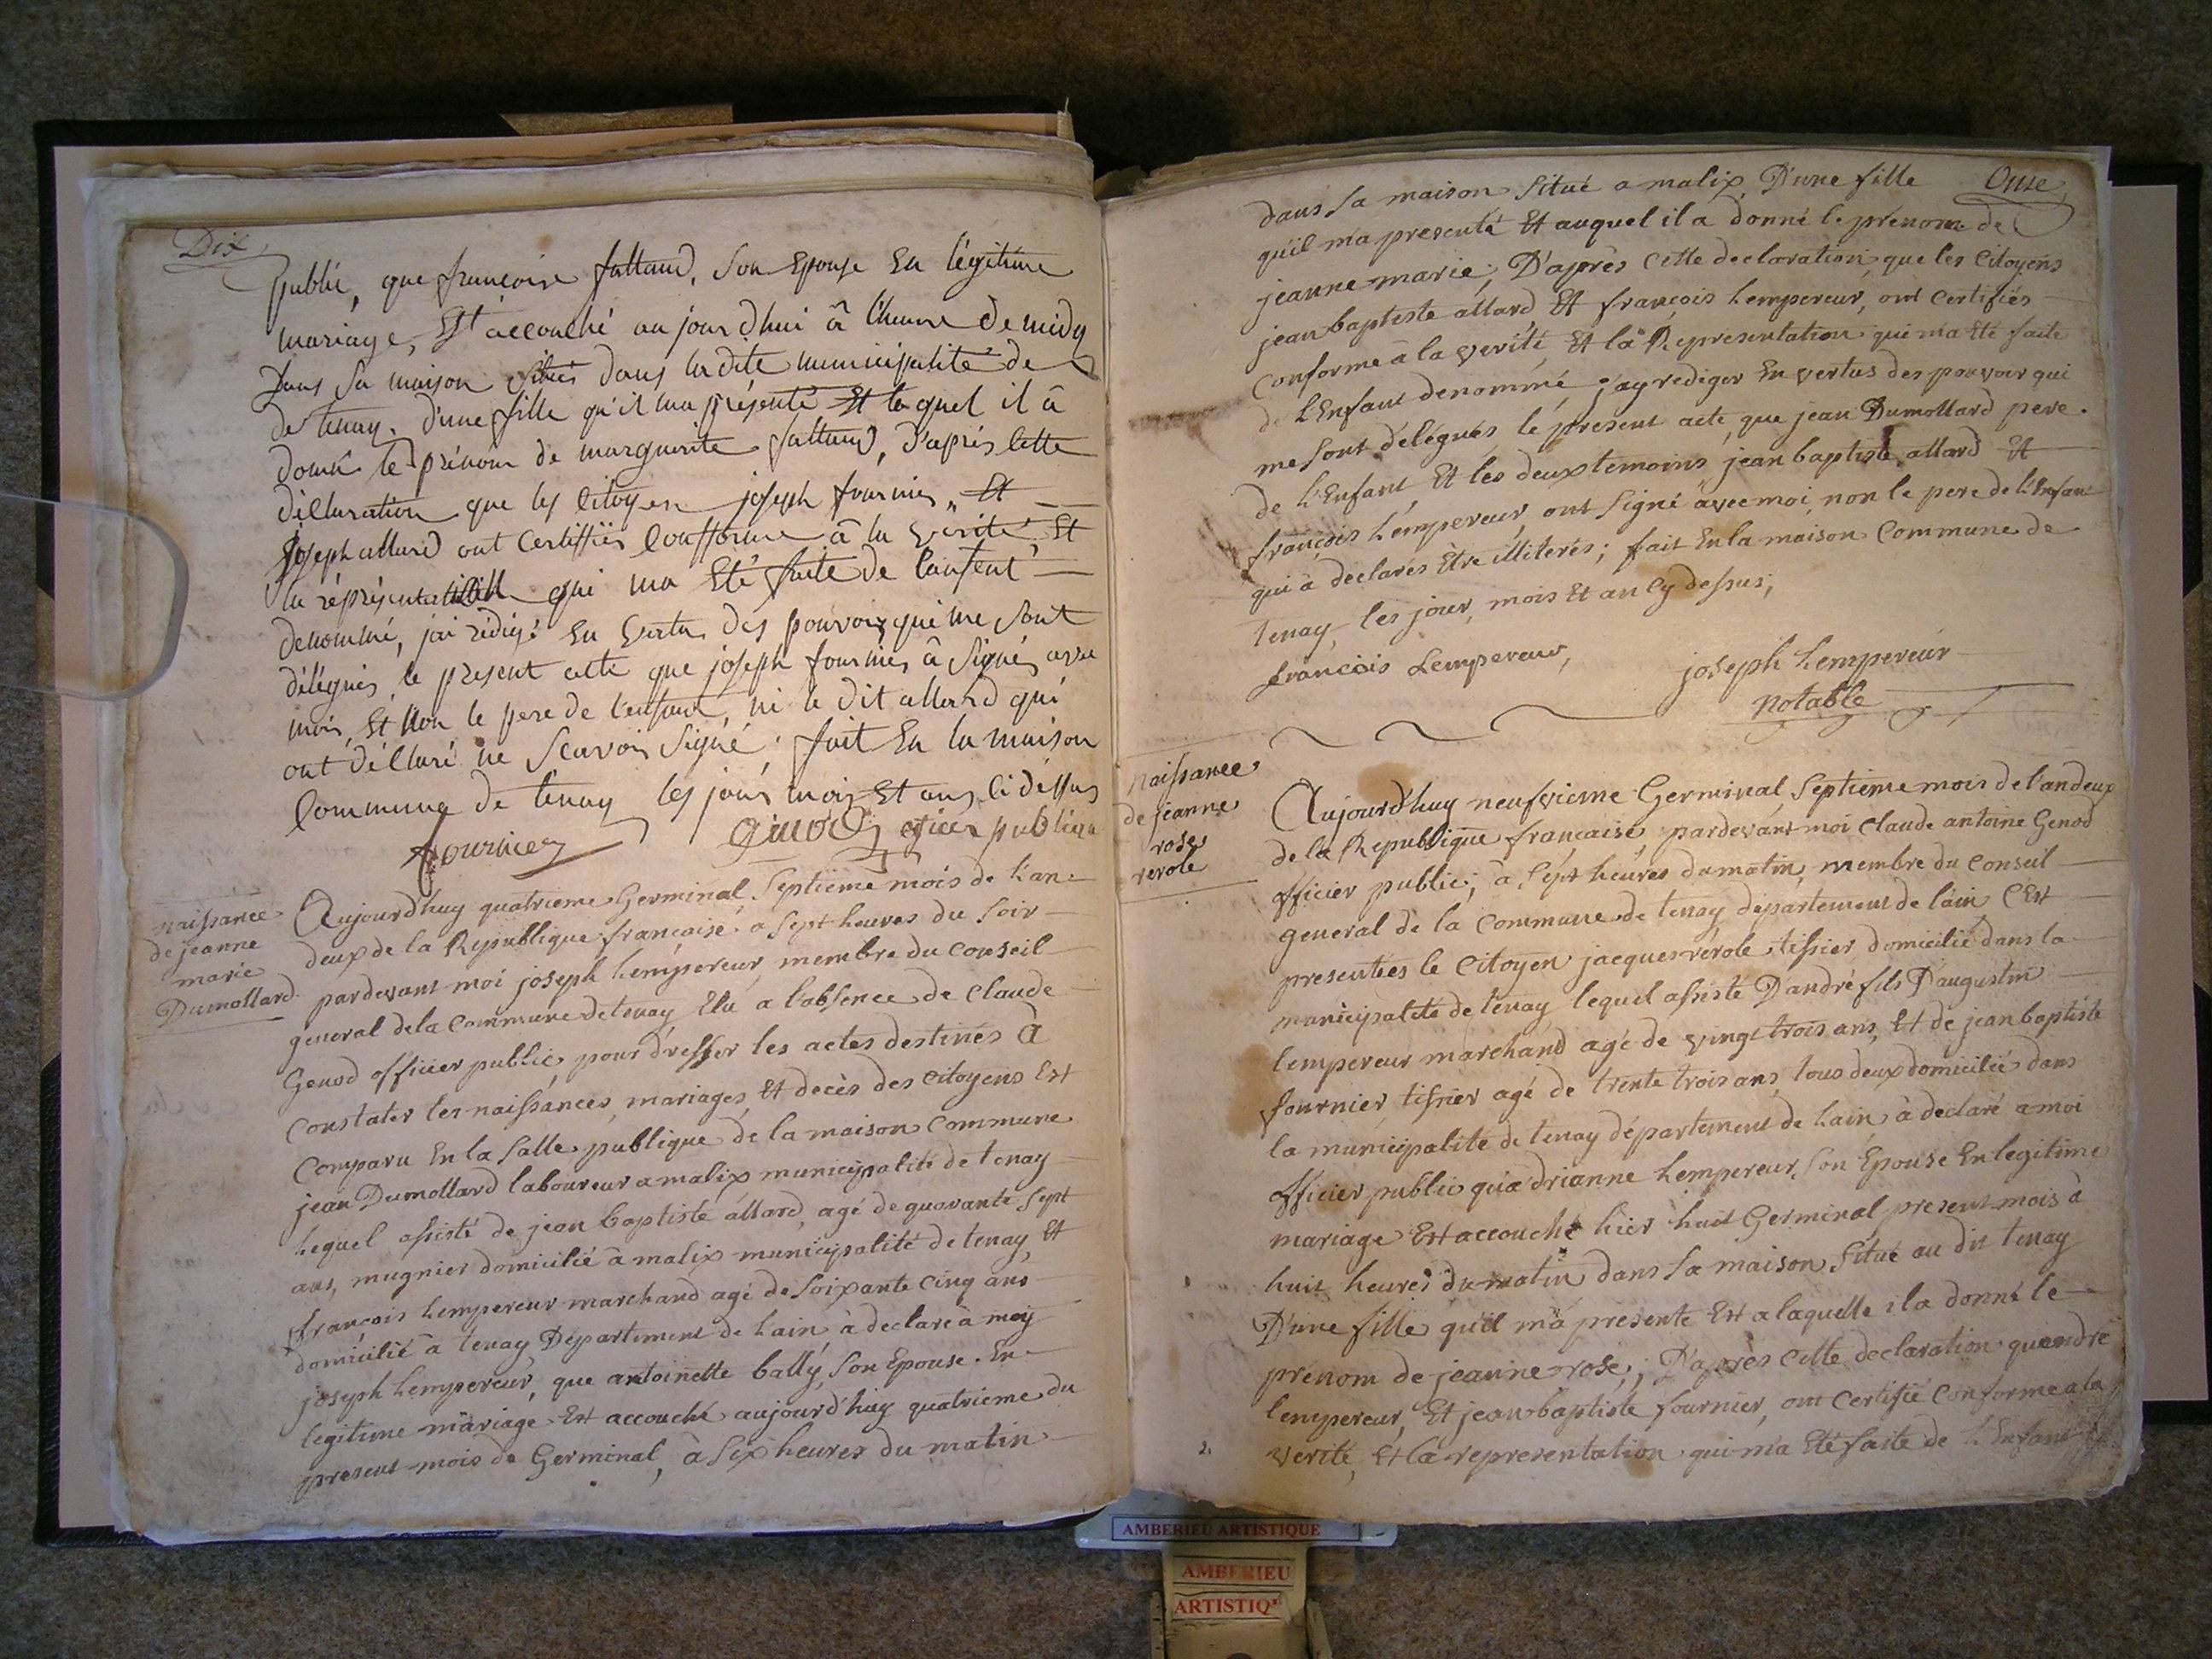 Dix
publié, que françoise fattand, son Epouse En légitime
mariage, Est accouché aujourdhui à l'heure de midy
Dans sa maison située dans la dite municipalité de
de tenay. d'une fille qu'il ma présenté Et laquel il à
donné le prénom de marguerite fattand, d'après cette
déllaration que les citoyen joseph fournier, Et
joseph allard ont certiffiés confforme à la vérité, Et
la réprésentation qui ma Eté faite de l'enfent
denommé, j'ai rédigé En vertu des pouvoirs qui me sont
délégués, le présent acte que joseph fournier à signés avec
moi, Et non le pere de l'enfant, ni le dit allard qui
ont déllaré ne scavoir signé; fait En la maison
Commune de tenay les jour mois Et ans ci déssus
fournier genod oficier publique
naissance
de jeanne
marie
Dumollard
Aujourd'huy quatrieme Germinal Septiéme mois de L'an
deux de la République française à sept heures du soir
pardevant moi joseph Lempereur, membre du conseil
general de la Commune de tenay Elu a l'absence de Claude
Genod officier public, pour dresser les actes destinés à
constater les naissances, mariages, Et decès des citoyens Est
comparu En la salle publique de la maison commune
jean Dumollard laboureur a malix municipalité de tenay
Lequel assisté de jean baptiste allard, agé de quarante sept
ans, mugnier domicilié à malix municipalité de tenay, Et
françois Lempereur marchand agé de soixante cinq ans
domicilié à tenay Département de Lain à declaré à moy
joseph Lempereur, que antoinette bally, son Epouse. En
legitime mariage Est accouché aujourd'huy quatrieme du
present mois de Germinal, à six heures du matin
Onze
dans sa maison situé a malix, D'une fille
qu'il m'a presenté Et auquel il a donné le prenom de
jeanne marie; D'après cette declaration que les citoyens
jean baptiste allard Et françois Lempereur, ont certifiés
conforme à la verité, Et la Representation qui m'a Eté faite
de L'Enfant denommé, j'ay rediger En vertus des pouvoir qui
me sont délégués, le present acte, que jean Dumollard pere
de L'Enfant, Et les deux temoins jean baptiste allard Et
françois Lempereur, ont signé avec moi, non le pere de L'Enfant
qui à declarés Etre illiterés; fait En la maison commune de
tenay, les jour, mois Et an Cy dessus;
francois Lempereur, joseph Lempereur
notable
naissance
de jeanne
rose
rerole
Aujourd'huy neufvieme Germinal Septieme mois de l'an deux
de la Republique française, pardevant moi Claude antoine Genod
officier public; à sept heures du matin, membre du conseil
general de la Commune de tenay departement de lain C'Est
presentées le Citoyen jacques rerole tissier domicilié dans la
municipalité de tenay lequel assisté D'andré fils D'augustin
lempereur marchand agé de vingt trois ans, Et de jean baptiste
fournier tissier agé de trente trois ans, tous deux domicilié dans
la municipalité de tenay département de Lain, à declaré a moi
officier public qu'adrianne Lempereur, son Epouse En legitime
mariage Est accouché hier huit Germinal present mois à
huit heures du matin dans sa maison situé au dit tenay
D'une fille qu'il m'a presenté Est a laquelle il a donné le
prénom de jeanne rose; D'après cette declaration qu'andré
lempereur, Et jean baptiste fournier, ont certifié conforme a la
verité, Et la representation qui m'a Eté faite de L'Enfant
2.
AMBERIEU ARTISTIQUE
AMBERIEU
ARTISTIQ